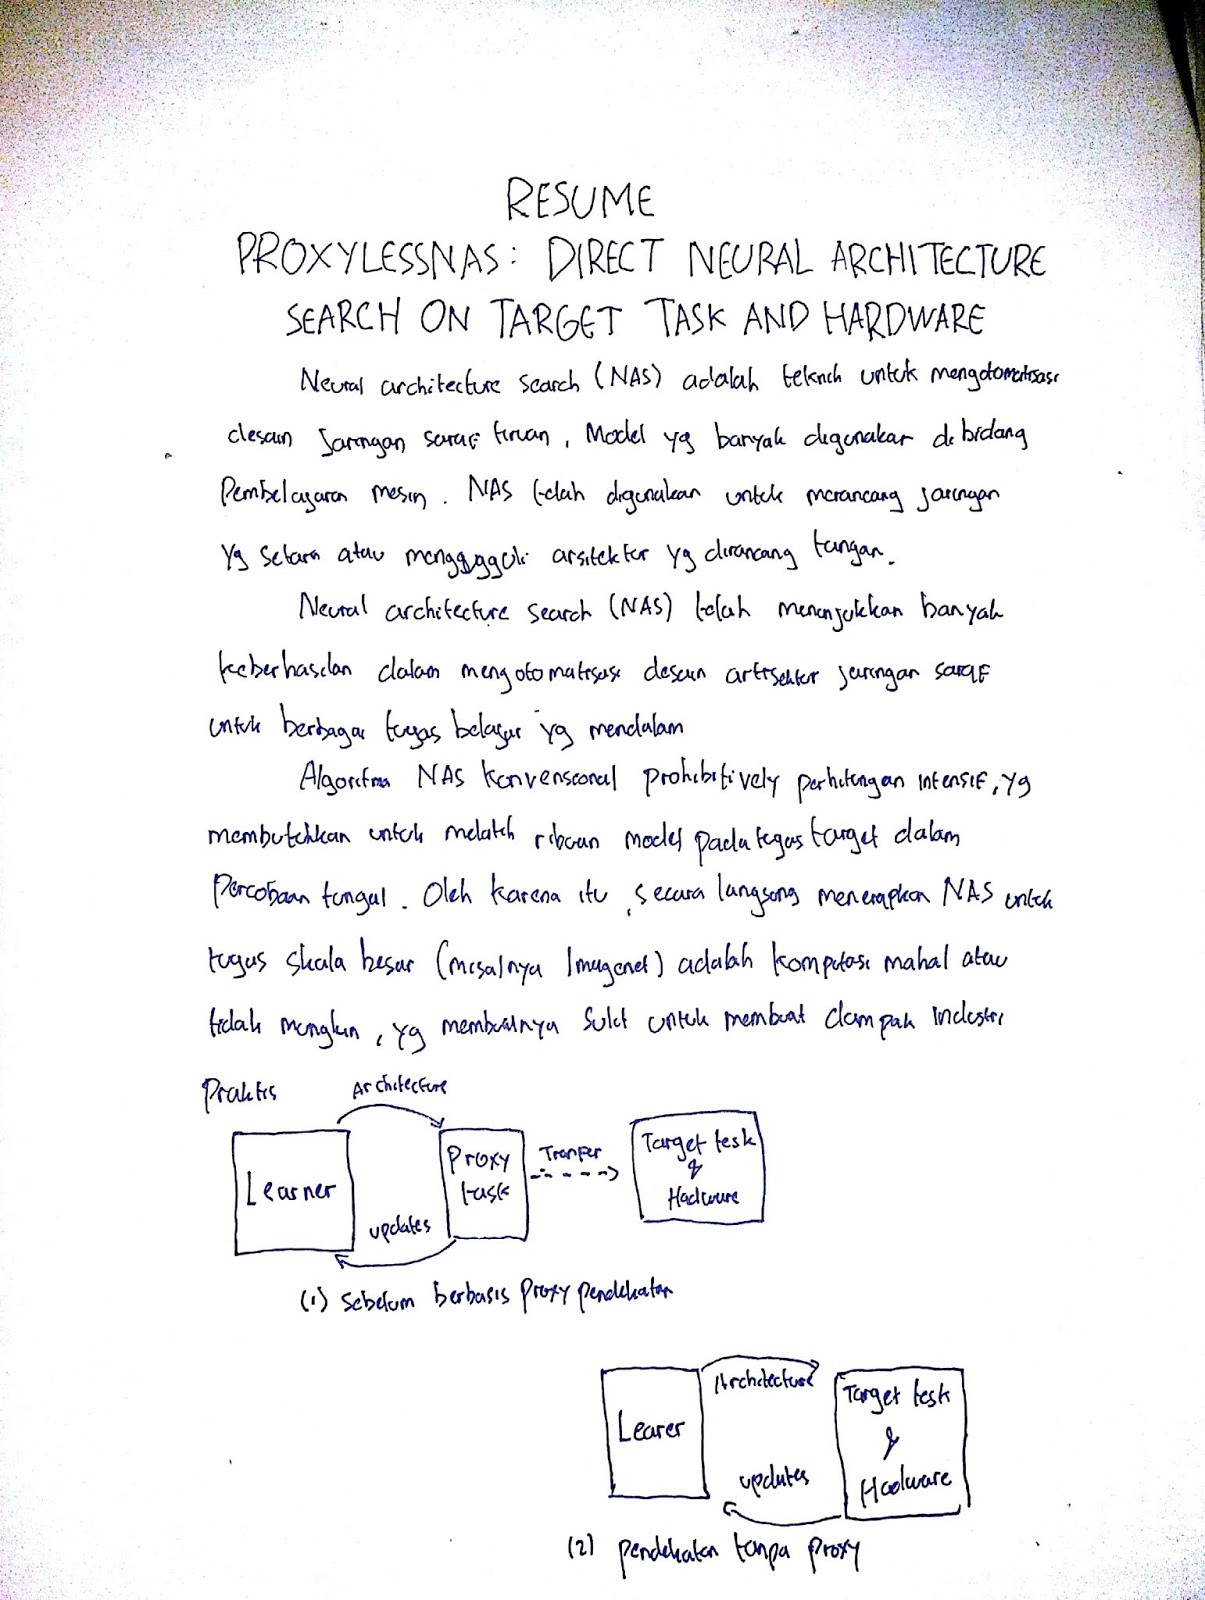 RESUME
PROXYLESSNAS: DIRECT NEURAL ARCHITECTURE
SEARCH ON TARGET TASK AND HARDWARE
Neural architecture search (NAS) adalah teknik untuk mengotomatisasi
desain jaringan saraf tiruan, Model yg banyak digunakan di bidang
Pembelajaran mesin. NAS telah digunakan untuk merancang jaringan
yg setara atau mengungguli arsitektur yg dirancang tangan.
Neural architecture search (NAS) telah menunjukkan banyak
keberhasilan dalam mengotomatisasi desain artisektur jaringan saraf
untuk berbagai tugas belajar yg mendalam
Algoritma NAS konvensional prohibitively perhitungan intensif, yg
membutuhkan untuk melatih ribuan model pada tugas target dalam
Percobaan tunggal. Oleh karena itu, secara langsung menerapkan NAS untuk
tugas skala besar (misalnya Imagenet) adalah komputasi mahal atau
tidak mungkin, yg membuatnya sulit untuk membuat dampak industri
Praktis
Architecture
Learner
Proxy
task
Tranfer
Target tesk
&
Hadware
updates
(1) Sebelum berbasis Proxy pendekatan
Architecture
Learer
Target tesk
&
Hadware
updates
(2) pendekatan tanpa proxy